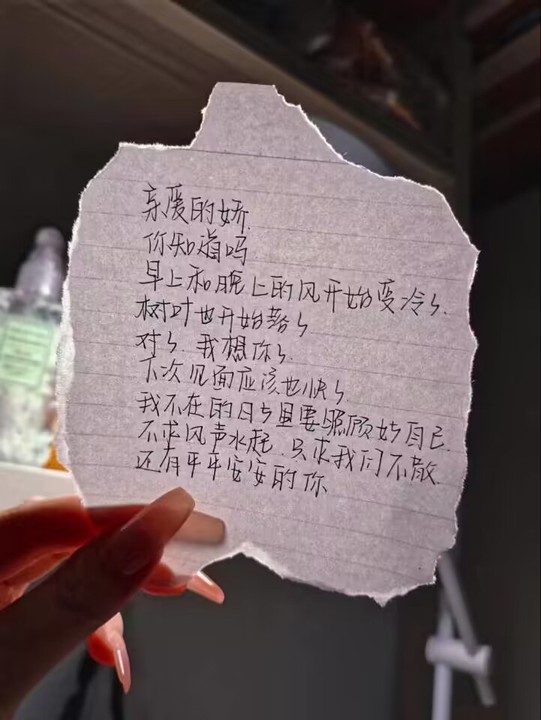 亲爱的娇.
你知道吗
早上和晚上的风开始变冷了.
树叶也开始落了
对了.我想你了.
下次见面应该也快了.
我不在的日子里要照顾好自己.
不求风声水起.只求我们不散.
还有平平安安的你